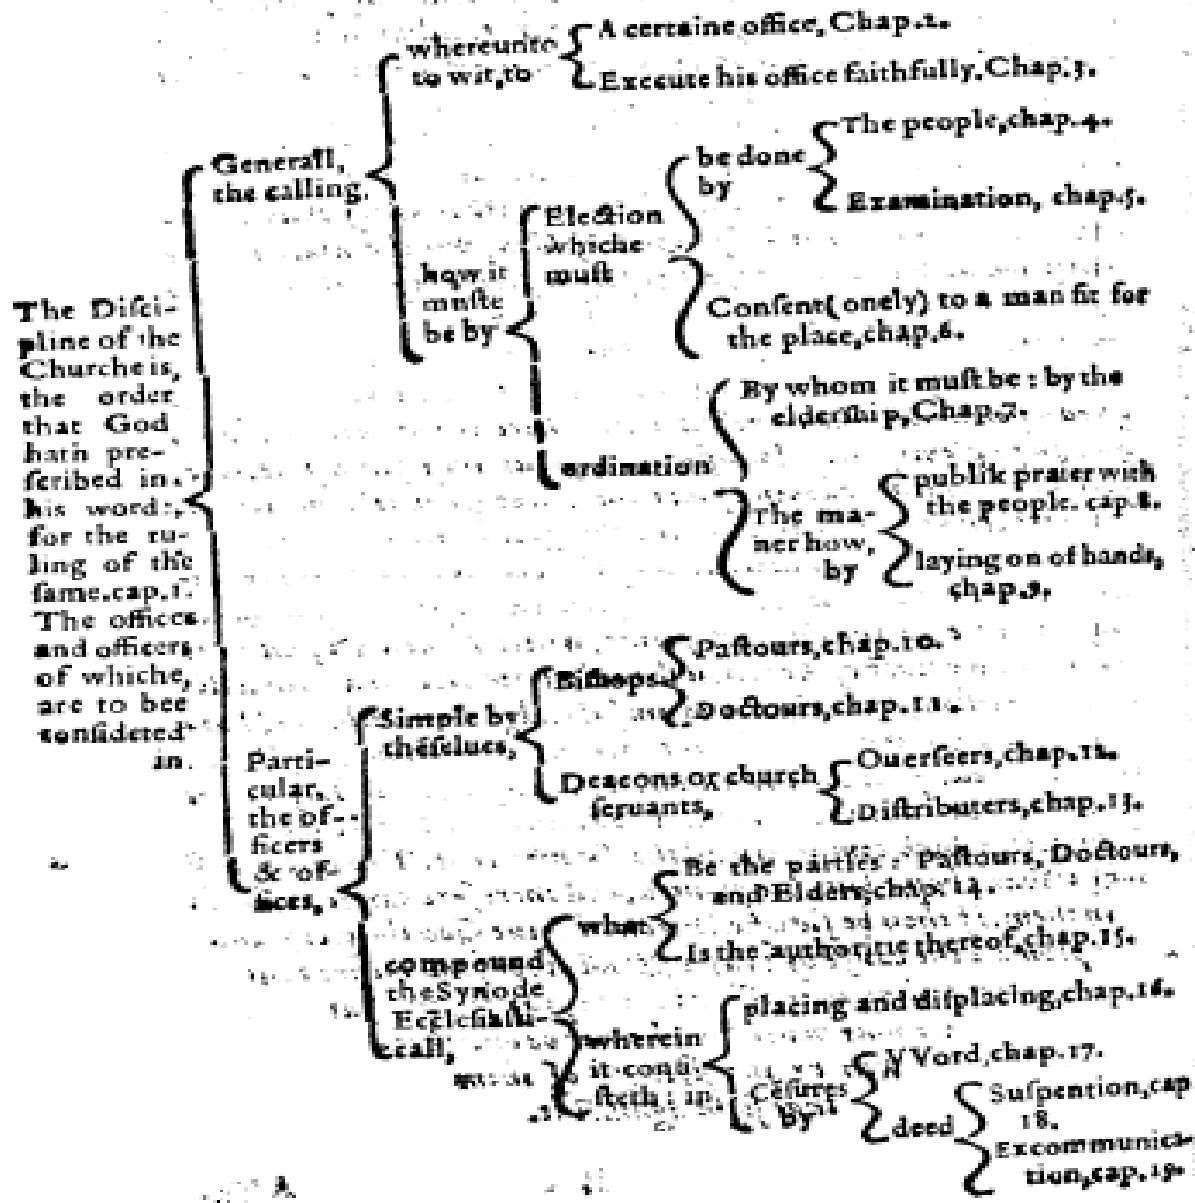 The Disci-
pline of the
Churche is,
the order
that God
hath pre-
scribed in
his word:,
for the ru-
ling of the
same.cap.1.
The offices
and officers
of whiche,
are to bee
considered
in.
Generall,
the calling.
whereunto
to wit,to
A certaine office, Chap.2.
Execute his office faithfully.Chap.3.
how it
muste
be by
Election
whiche
must
be done
by
The people,chap.4.
Examination, chap.5.
Consent(onely) to a man fit for
the place,chap.6.
ordination
By whom it must be : by the
eldership, Chap.7.
The ma-
ner how,
by
publik praier with
the people. cap.8.
laying on of hands,
chap.9.
Parti-
cular,
the of-
ficers
& of-
fices,
Simple by
thēselues,
Bishops.
Pastours,chap.10.
Doctours,chap.11.
Deacons or church
seruants,
Ouerseers,chap.12.
Distributers,chap.13.
compound
the Synode
Ecclesiasti-
call,
what
Be the parties : Pastours, Doctours,
and Elders,chap.14.
Is the authoritie thereof,chap.15.
wherein
it consi-
steth : in
placing and displacing,chap.16.
Cēsures
by
VVord,chap.17.
deed
Suspention,cap
18.
Excommunica-
tion,cap.19.